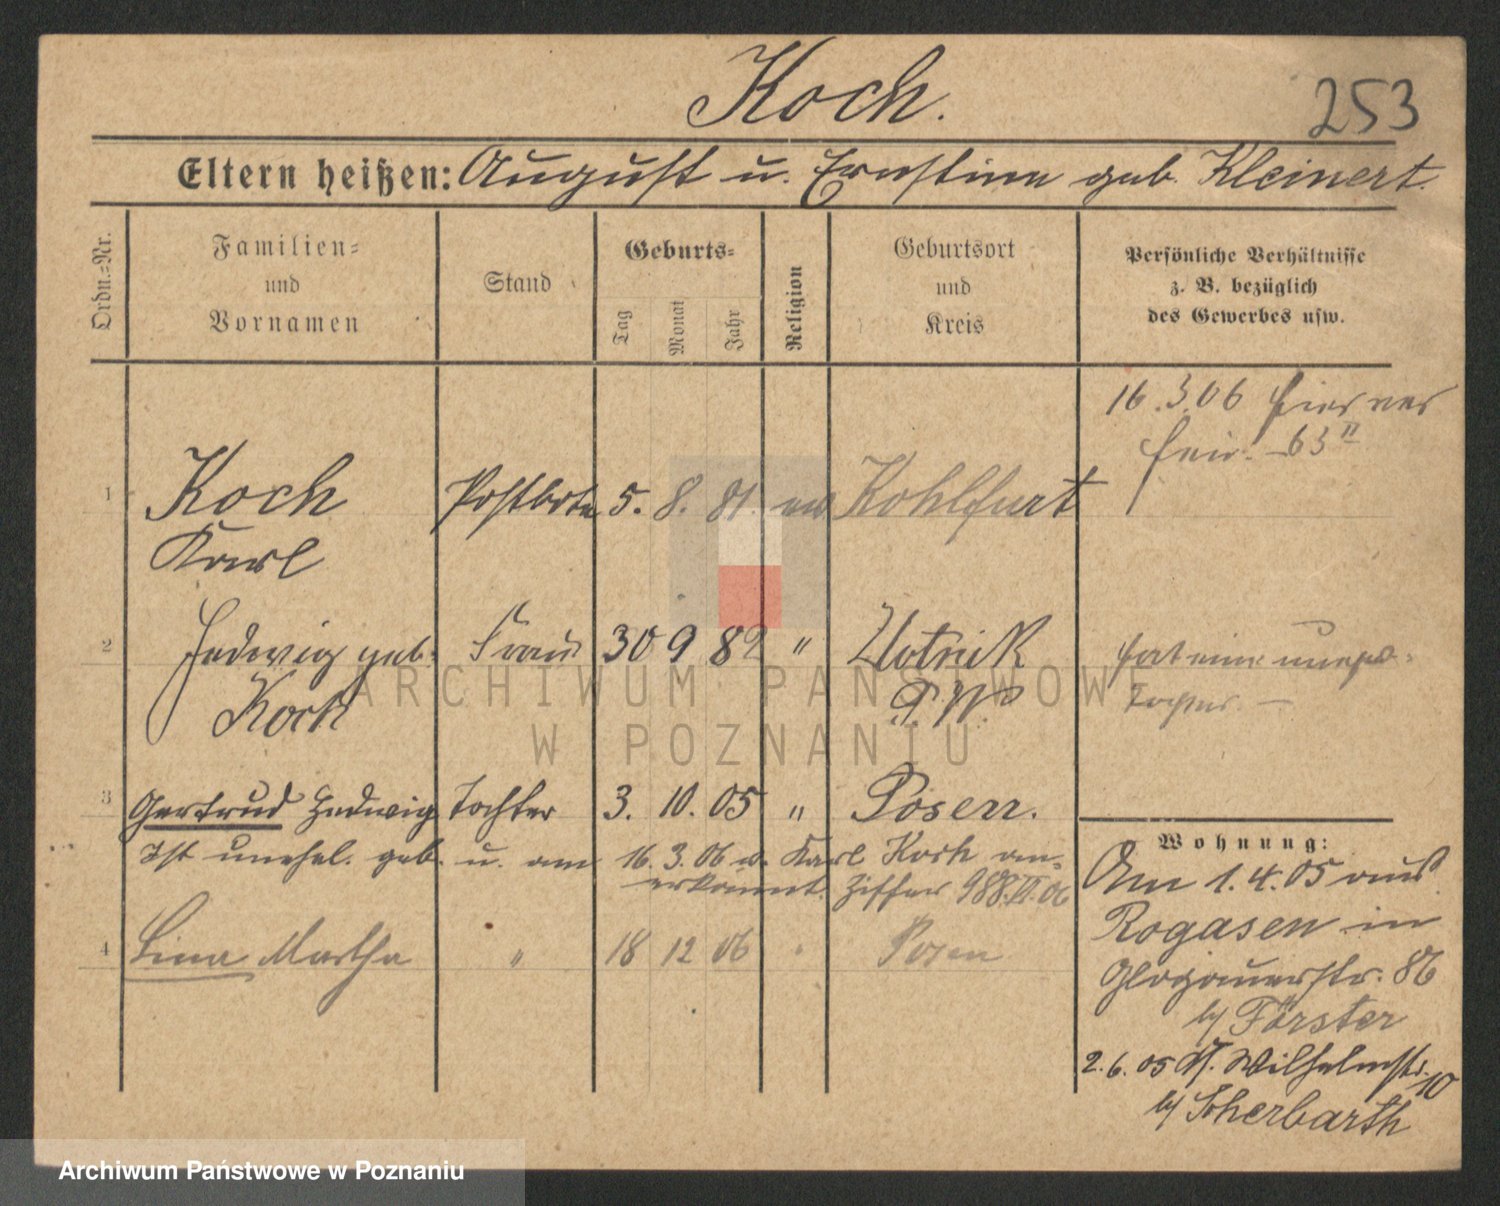 Koch.
253
Eltern heißen: August u. Ernstine geb. Kleinert.
Ordn.=Nr.
Familien=
und
Vornamen
Stand
Geburts=
Tag
Monat
Jahr
Religion
Geburtsort
und
Kreis
Persönliche Verhältnisse
z. B. bezüglich
des Gewerbes usw.
16.3.06 hier ver
heir. 63 II
1 Koch Postbote 5. 8. 81. ev Kohlfurt
Karl
2 Hedwig geb. Frau 30 9 82 " hat eine
Koch
P. W.
Tochter. —
3 Gertrud Hedwig Tochter 3. 10. 05 " Posen.
Ist unehel. geb. u. am 16. 3. 06 v. Karl Koch an=
erkannt. Ziffer 988.VI.06
4 Lina Martha " 18 12 06 Posen
Wohnung:
Am 1.4.05 aus
Rogasen in
Glogauerstr. 86
by Förster
2.6.05 Wilhelmstr. 10
by Scherbarth
ARCHIWUM PAŃSTWOWE
W POZNANIU
Archiwum Państwowe w Poznaniu